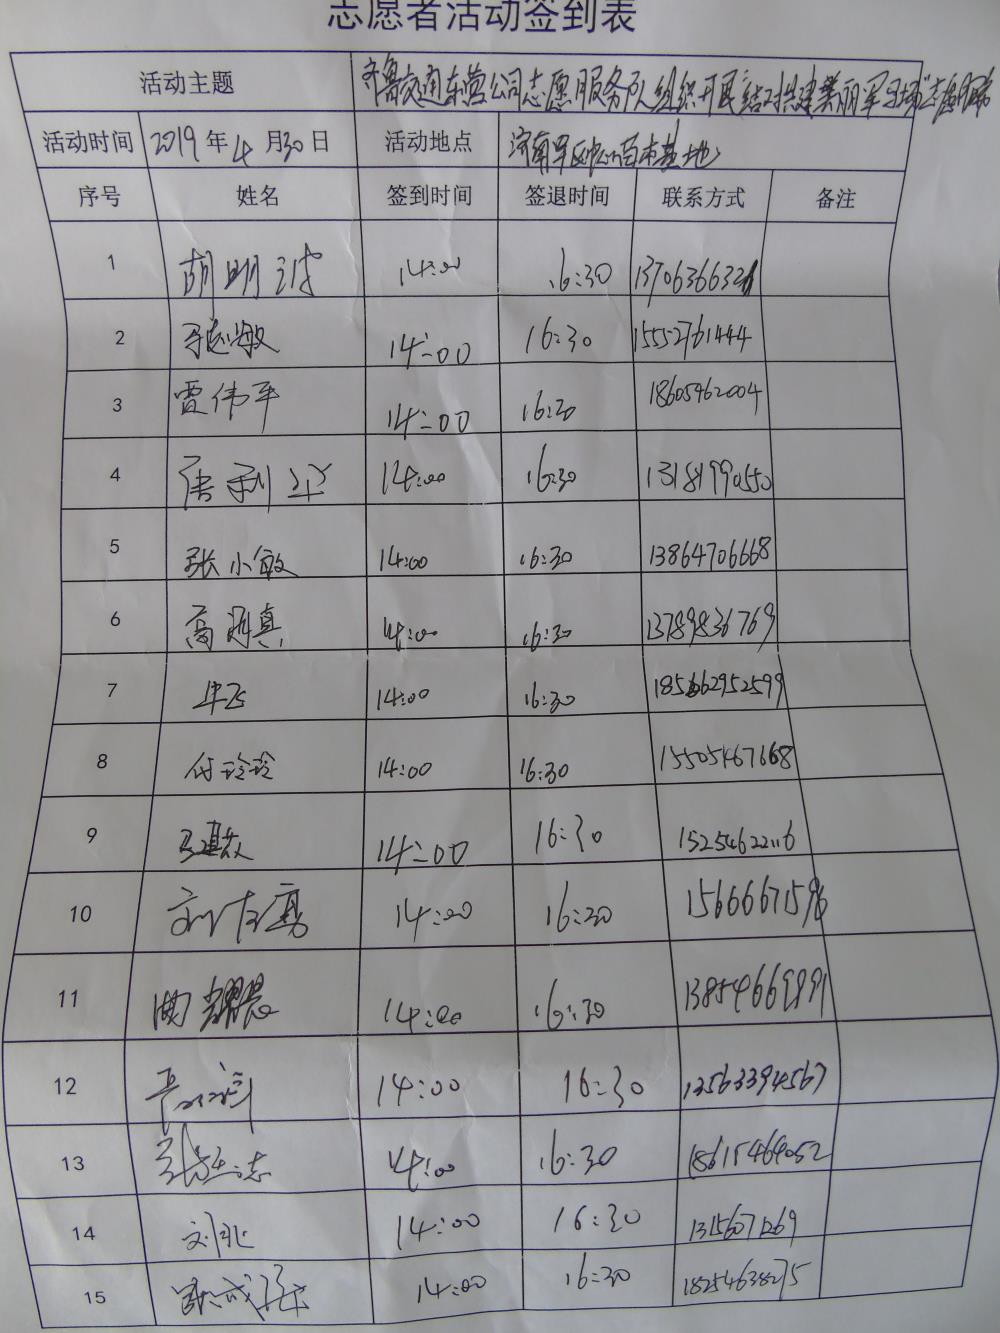 志愿者活动签到表
活动主题 齐鲁交通东营公司志愿服务队组织开展"结对共建美丽军马场"志愿服务
活动时间 2019年4月30日 活动地点 济南军区
序号 姓名 签到时间 签退时间 联系方式 备注
1 胡明波 14:00 16:30
2 14:00 16:30 15552761444
3 贾伟平 14:00 16:30 18605462004
4 唐利 14:00 16:30 13181990550
5 张小敏 14:00 16:30 13864706668
6 高 真 14:00 16:30 13789836769
7 14:00 16:30
8 付玲玲 14:00 16:30 15505467668
9 14:00 16:30 15254622116
10 刘 14:00 16:30 15666671596
11 曲耀晨 14:00 16:30 13854669891
12 14:00 16:30 13563394567
13 志 14:00 16:30 18615464052
14 刘 14:00 16:30 13156071269
15 14:00 16:30 18254638275